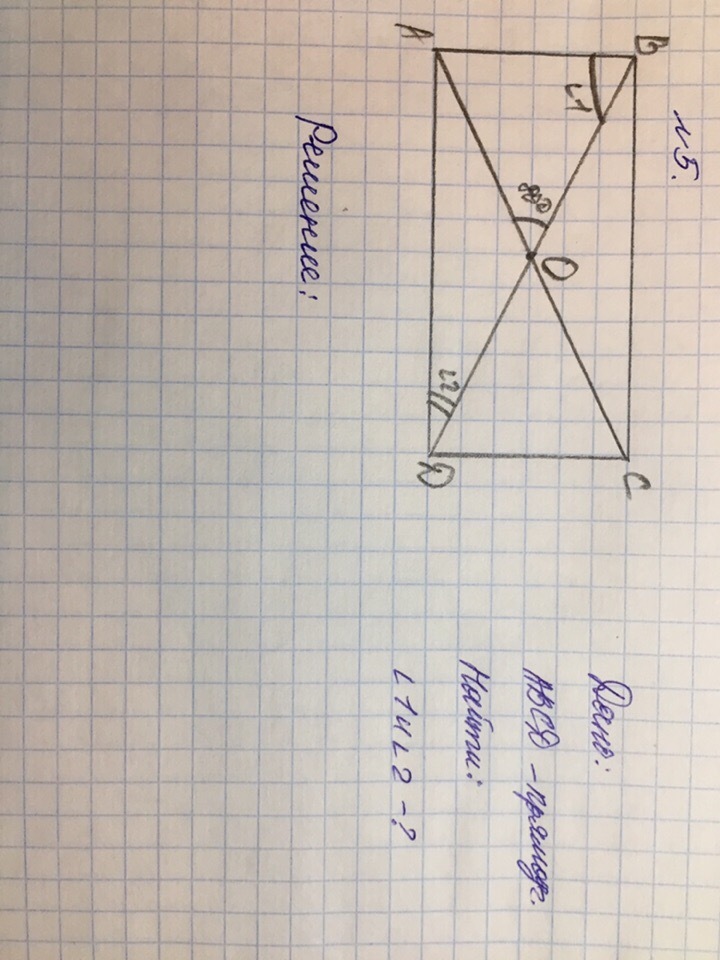 №5.
B
C
∠1
O
80°
∠2
A
D
Дано:
ABCD - прямоуг.
Найти:
∠1 и ∠2 - ?
Решение: